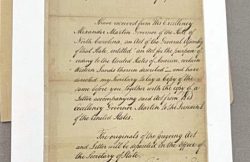 I have received from His Excellency
Alexander Martin Governor of the State of
North Carolina, an Act of the General Assembly
of that State, entitled "an Act for the purpose of
ceding to the United States of America, certain
Western Lands therein described", and have
directed my Secretary to lay a Copy of the
same before you, together with the copy of a
Letter accompanying said Act from His
Excellency Governor Martin to the President
of the United States.
The originals of the foregoing Act
and Letter will be deposited in the office of
the Secretary of State.